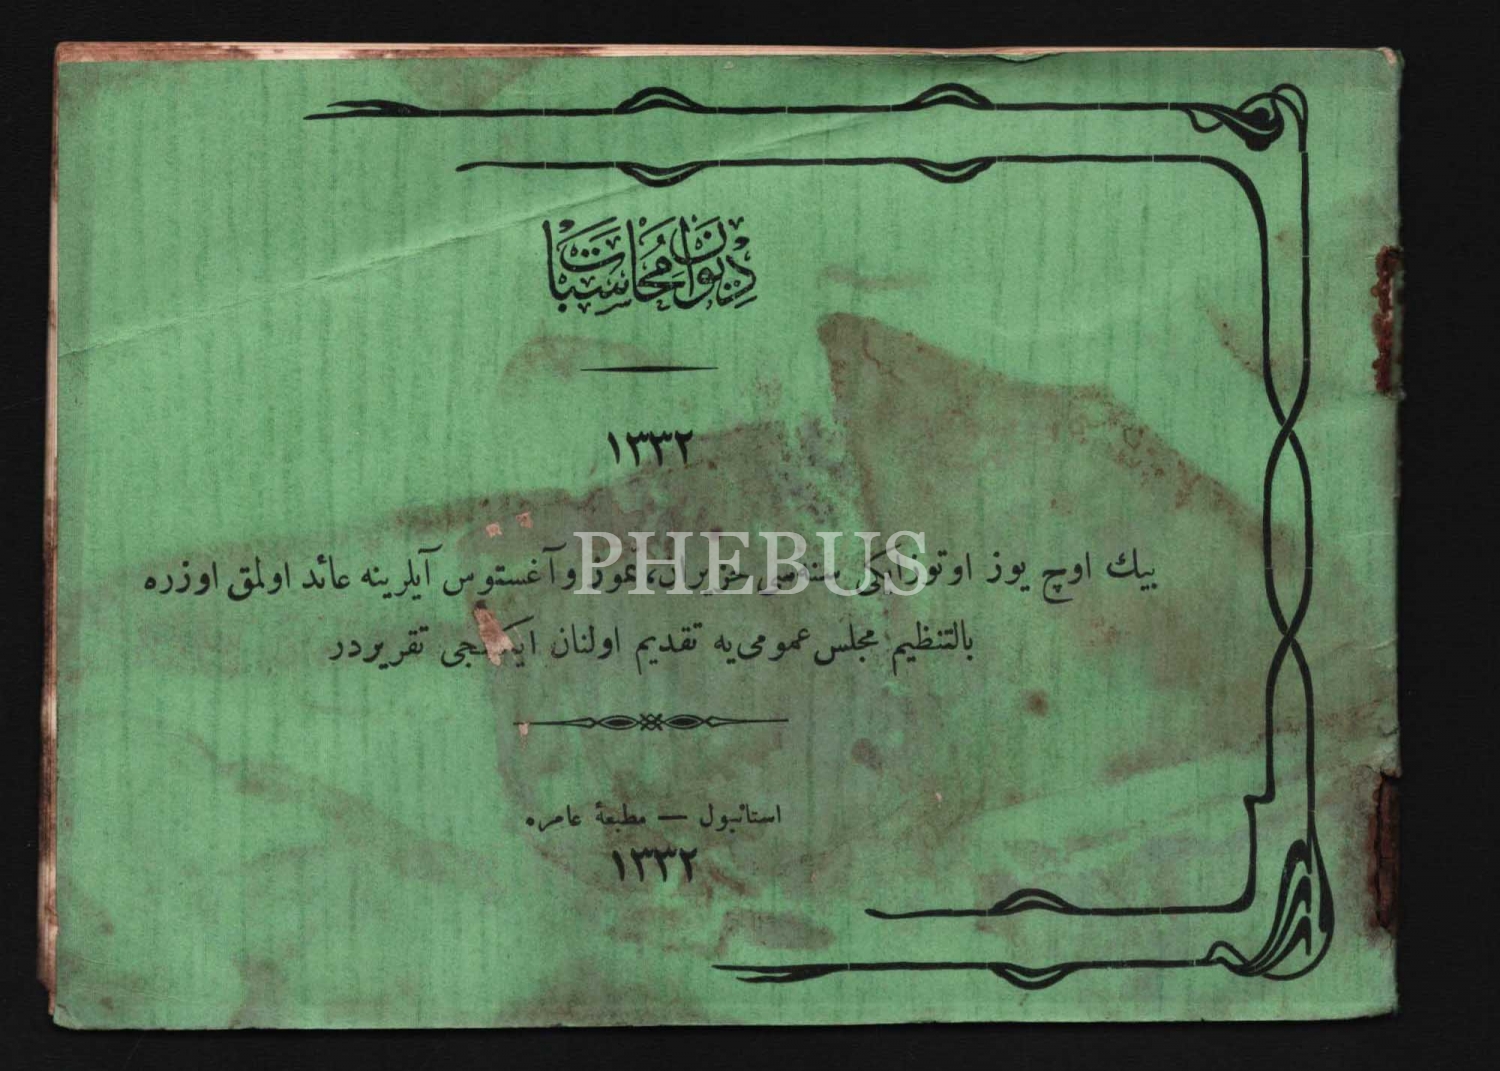 ديوان محاسبات
١٣٣٢
بيك اوچ يوز اوتوز ايكى سنه‌سى حزيران، تموز وآغستوس آيلرينه عائد اولمق اوزره
بالتنظيم مجلس عمومى‌يه تقديم اولنان ايكنجى تقريردر
استانبول — مطبعۀ عامره
١٣٣٢
PHEBUS